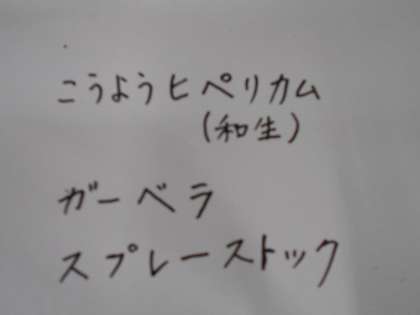 こうようヒペリカム
(和生)
ガーベラ
スプレーストック